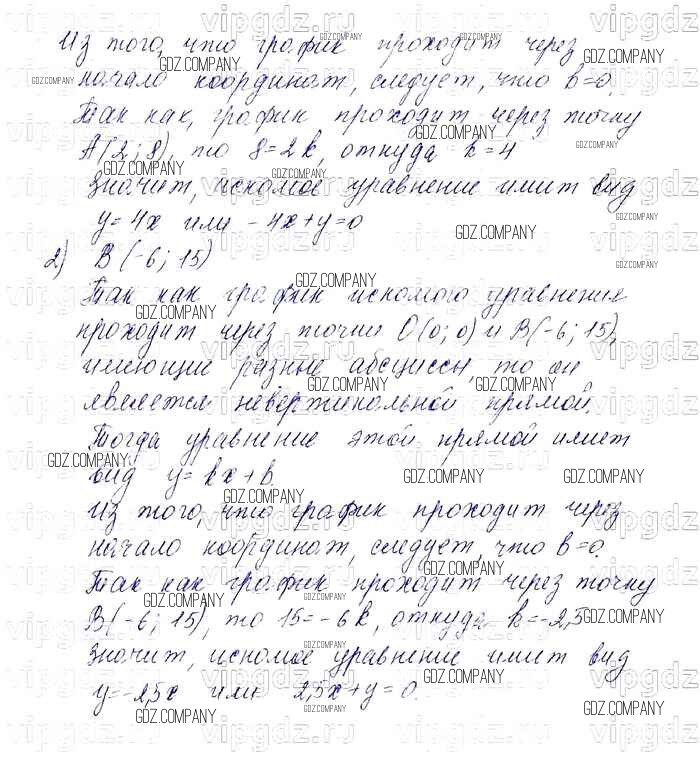 Из того, что график проходит через
начало координат, следует, что b=0.
Так как, график проходит через точку
A(2; 8), то 8=2k, откуда k=4
Значит, искомое уравнение имит вид
y=4x или -4x+y=0
2) B(-6; 15)
Так как график искомого уравнения
проходит через точки O(0; 0) и B(-6; 15),
имеющие разные абсциссы, то он
является невертикальной прямой.
Тогда уравнение этой прямой имеет
вид y=kx+b
Из того, что график проходит через
начало координат, следует, что b=0.
Так как график проходит через точку
B(-6; 15), то 15=-6k, откуда k=-2,5
Значит, искомое уравнение имит вид
y=-2,5x или 2,5x+y=0.